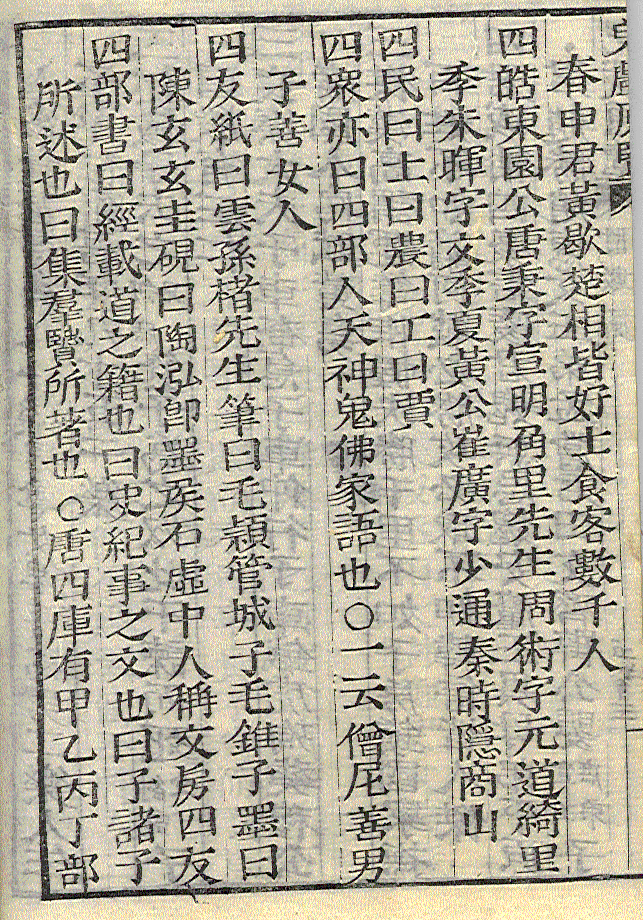 春申君黃歇楚相皆好士食客數千人
四皓東園公唐秉字宣明角里先生周術字元道綺里
季朱暉字文季夏黃公崔廣字少通秦時隱商山
四民曰士曰農曰工曰賈
四衆亦曰四部人天神鬼佛家語也○一云僧尼善男
子善女人
四友紙曰雲孫楮先生筆曰毛穎管城子毛錐子墨曰
陳玄玄圭硯曰陶泓卽墨矦石虛中人稱文房四友
四部書曰經載道之籍也曰史紀事之文也曰子諸子
所述也曰集羣賢所著也○唐四庫有甲乙丙丁部